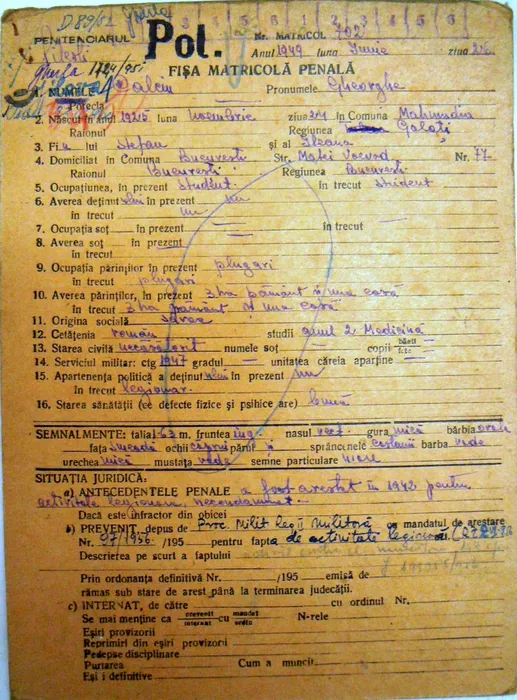 D.89/51
PENITENCIARUL Pol. Nr. MATRICOL 702
Pitești Anul 1949 luna Iunie ziua
Gherla 1724/95
FIȘA MATRICOLĂ PENALĂ
1. NUMELE Calciu Pronumele Gheorghe
Porecla
2. Născut în anul 1925 luna noembrie ziua 24 în Comuna Mahmudia
Raionul Regiunea Galați
3. Fiu lui Ștefan și al Ileana
4. Domiciliat în Comuna București Str. Matei Voevod Nr. 77
Raionul București Regiunea București
5. Ocupațiunea, în prezent student în trecut student
6. Averea deținutului în prezent nu
în trecut nu
7. Ocupația soț în prezent — în trecut —
8. Averea soț în prezent —
în trecut
9. Ocupația părinților în prezent plugari
în trecut plugari
10. Averea părinților, în prezent 3 ha pământ și una casă
în trecut 3 ha pământ și una casă
11. Origina socială
12. Cetățenia român studii anul 2 Medicină
13. Starea civilă necăsătorit numele soț — copii băeți fete —
14. Serviciul militar: ctg 1947 gradul — unitatea căreia aparține —
15. Apartenența politică a deținutului în prezent nu
în trecut legionar
16. Starea sănătății (ce defecte fizice și psihice are) bună
SEMNALMENTE: talia 1,63 m. fruntea nasul gura mică bărbia ovală
fața ochii căprui părul sprâncenele castanii barba rade
urechea mică mustața rade semne particulare n'are
SITUAȚIA JURIDICĂ:
a) ANTECEDENTELE PENALE a fost arestat în 1942 pentru
activitate legionară, necondamnat
Dacă este infractor din obicei
b) PREVENIT, depus de Proc. Milit cu mandatul de arestare
Nr. 97/1956 /195 pentru fapta de activitate legionară
Descrierea pe scurt a faptului
Prin ordonanța definitivă Nr. /195 emisă de
rămas sub stare de arest până la terminarea judecății.
c) INTERNAT, de către cu ordinul Nr.
Se mai menține ca prevenit internat cu mandat ordin N-rele
Eșiri provizorii
Reprimiri din eșiri provizorii
Pedepse disciplinare
Purtarea Cum a muncit
Eși i definitive